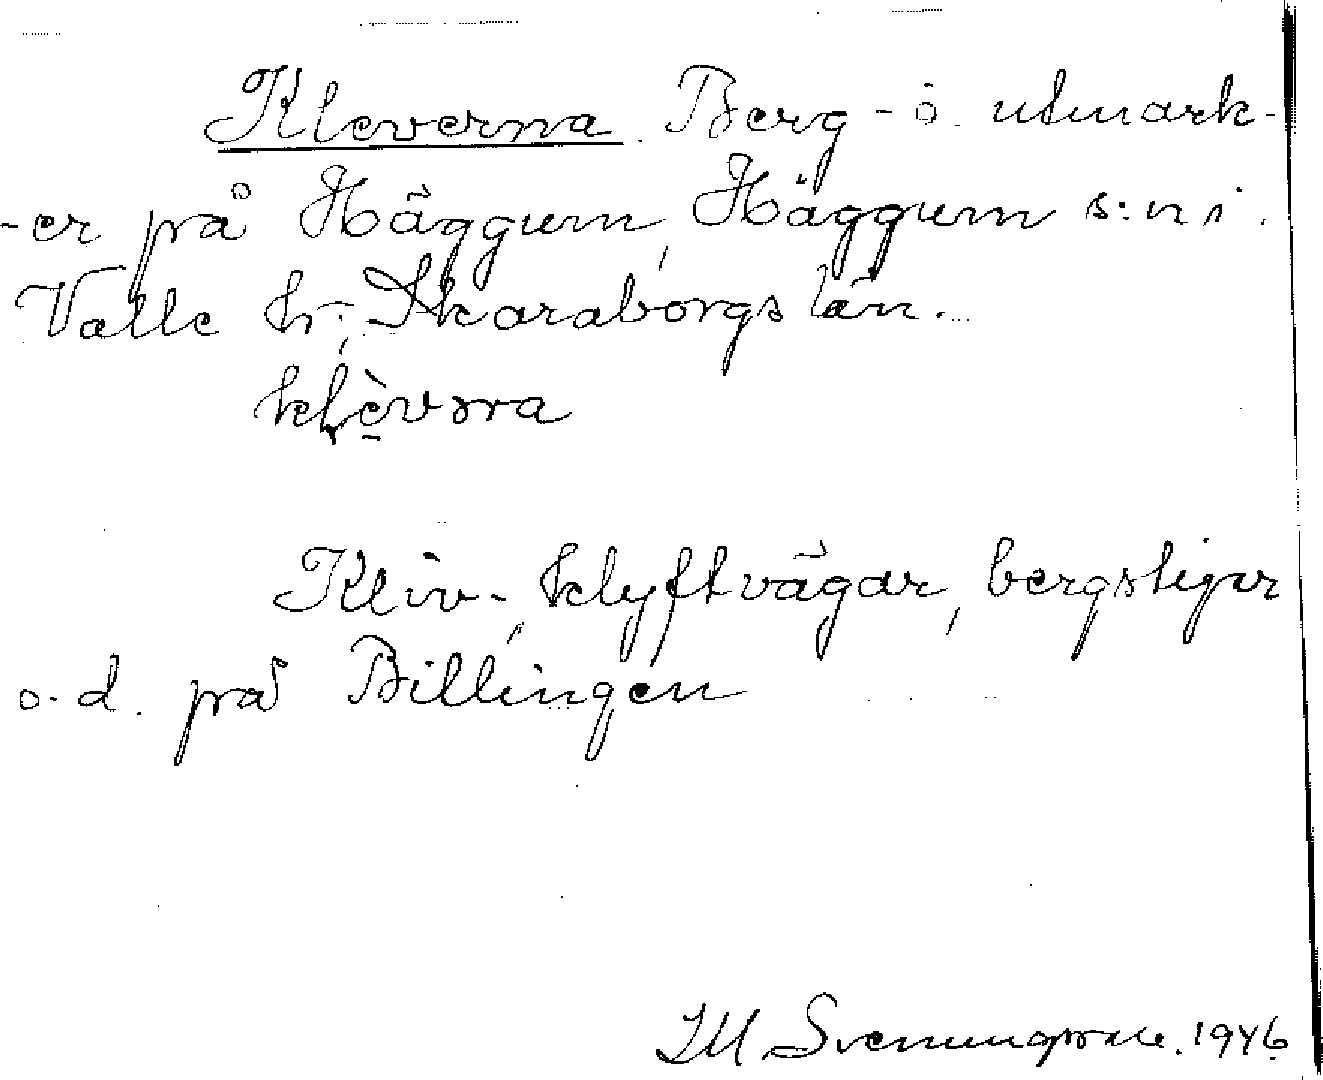 Kleverna. Berg- o. utmark-
-er på Häggum, Häggum s:n i
Valle hr, Skaraborgs län.
klèvəṛna
Kliv-, klyftvägar, bergstigar
o. d. på Billingen
1946